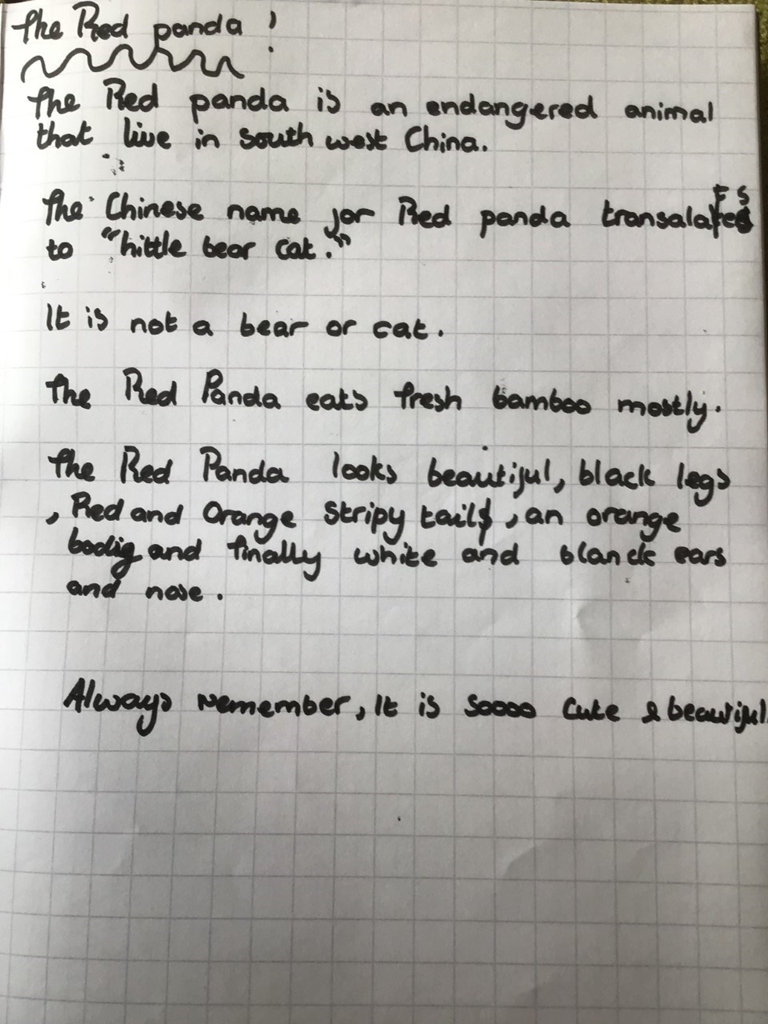 The Red panda !
The Red panda is an endangered animal
that live in south west China.
The Chinese name for Red panda transalates
to "little bear cat."
It is not a bear or cat.
The Red Panda eats fresh bamboo mostly.
The Red Panda looks beautiful, black legs
, Red and Orange stripy tail, an orange
body and finally white and blanck ears
and nose.
Always remember, It is soooo cute & beautiful